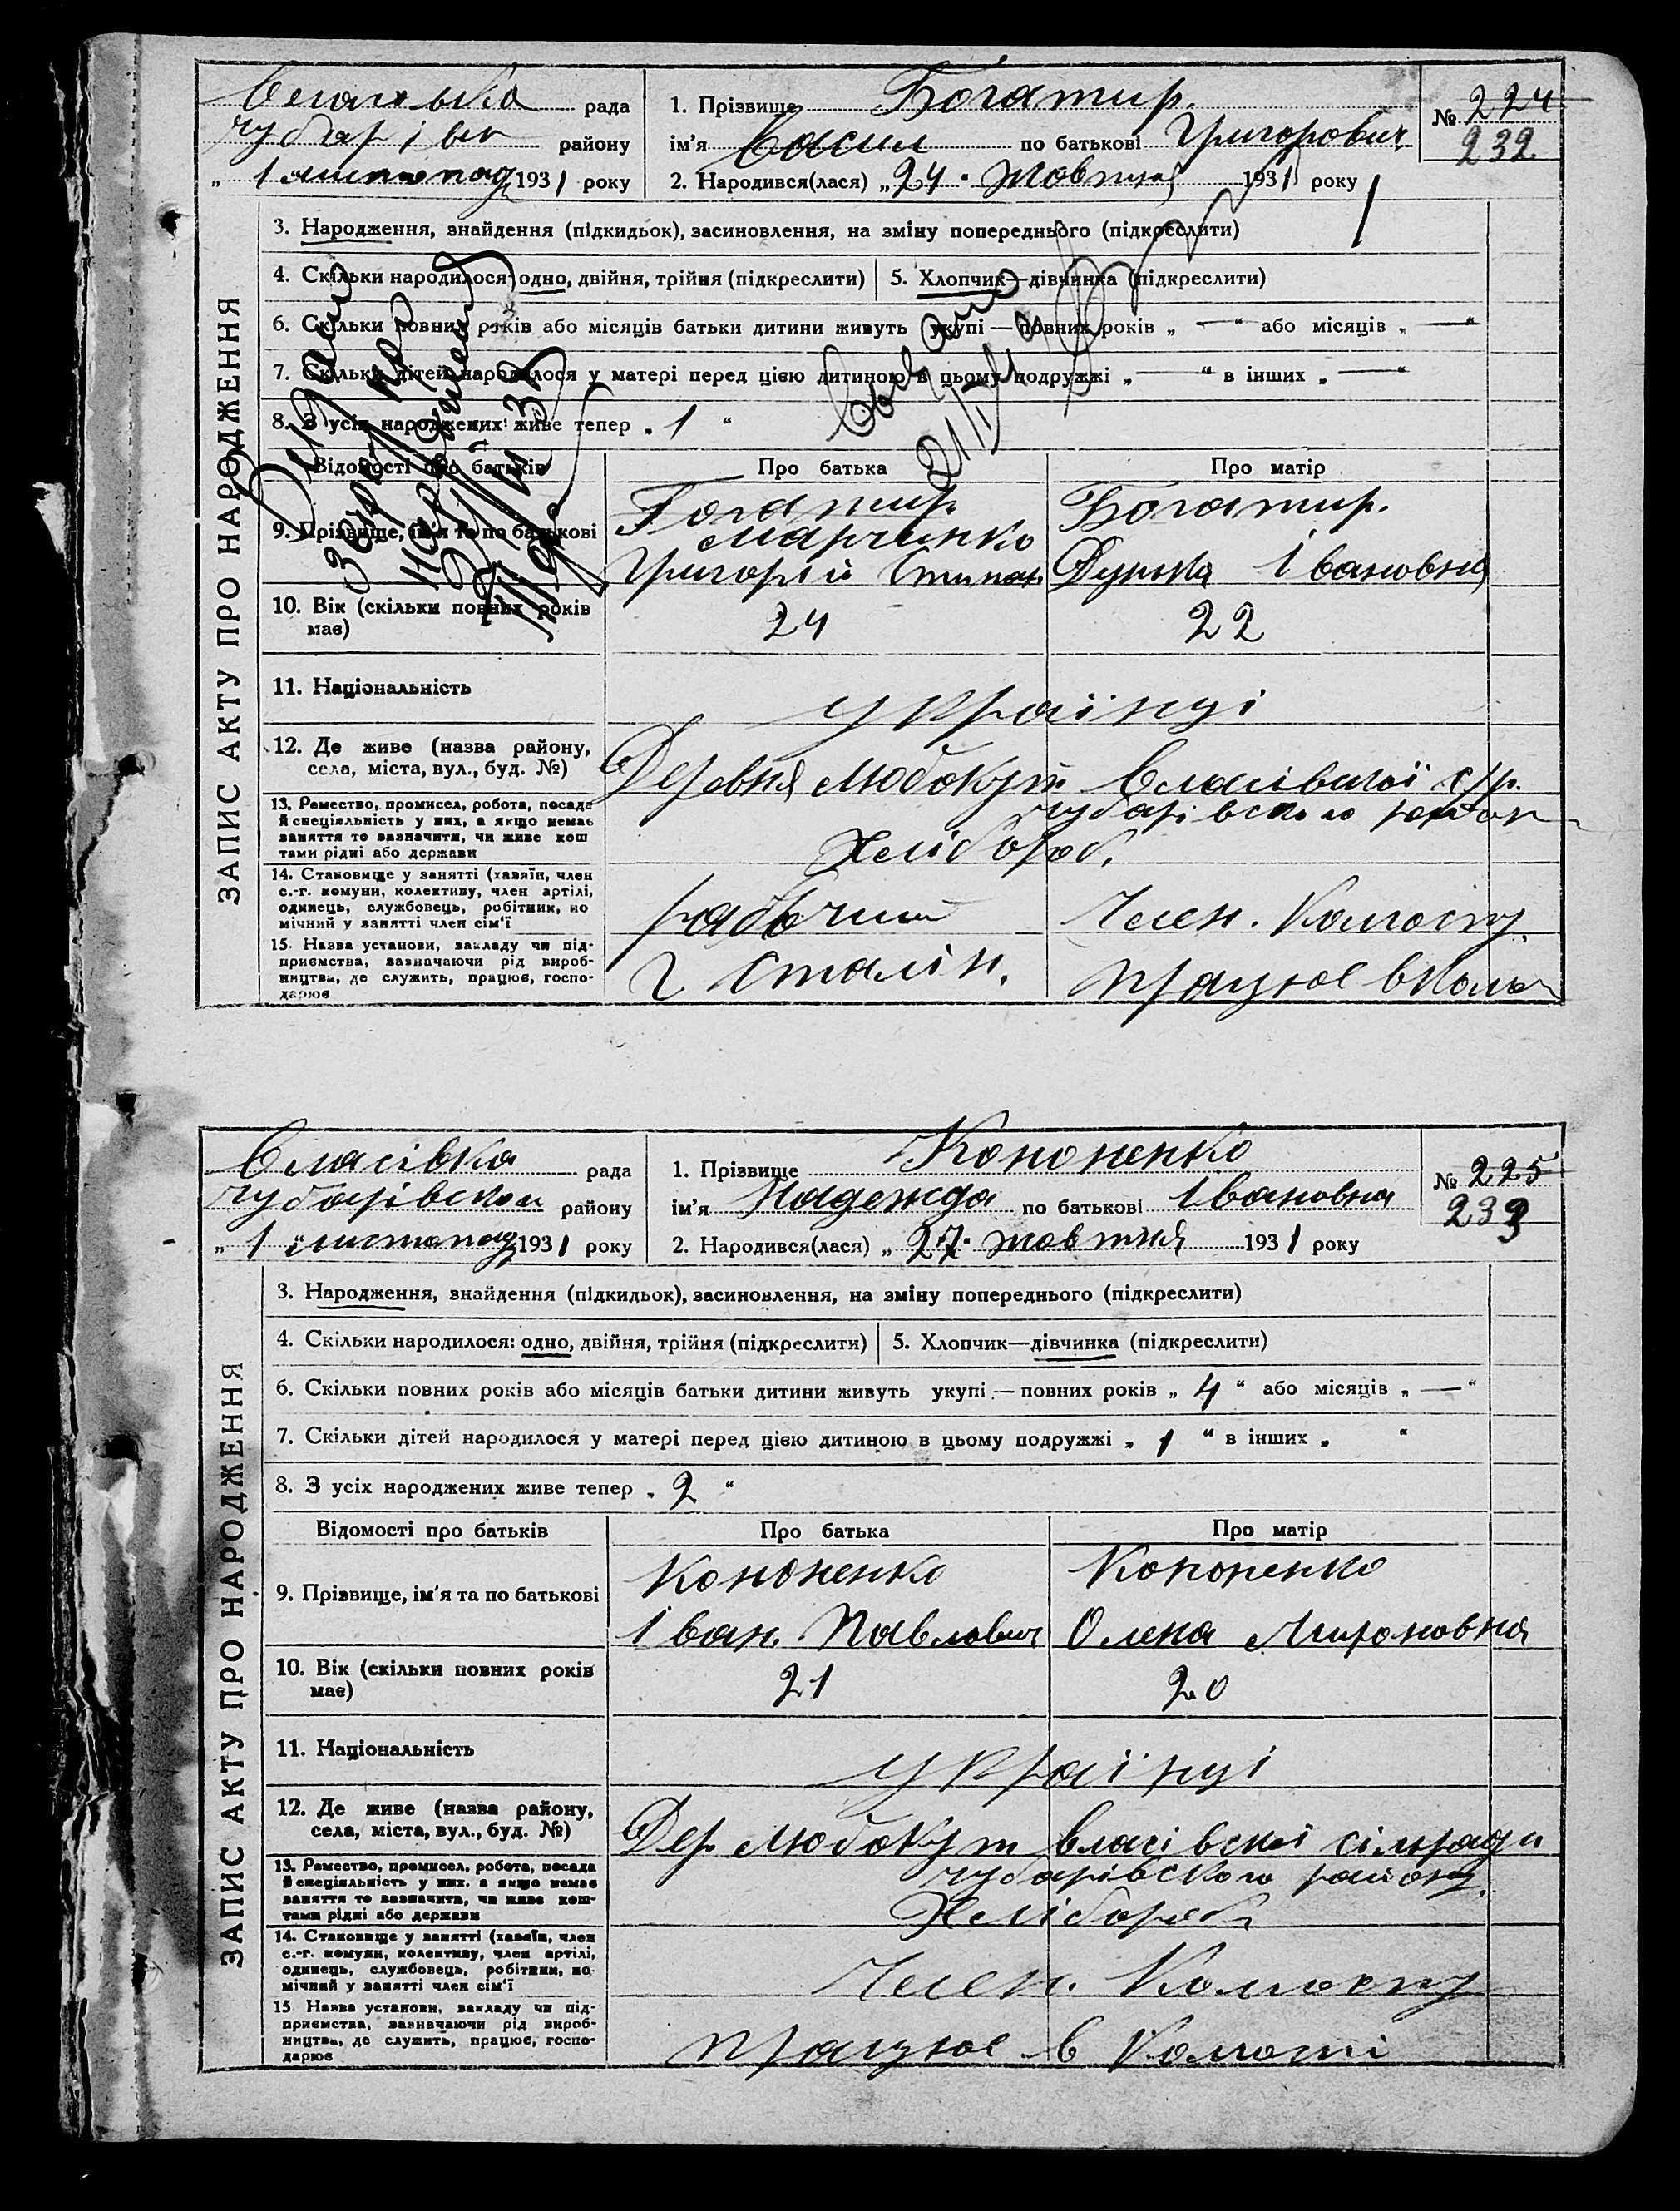 ЗАПИС АКТУ ПРО НАРОДЖЕННЯ
рада
району
„ 1 листопад 1931 року
1. Прізвище Богатир.
ім'я Васил по батькові Григорович
2. Народився(лася) „ 24. жовтня 1931 року
№ 224
232.
3. Народження, знайдення (підкидьок), засиновлення, на зміну попереднього (підкреслити)
4. Скільки народилося: одно, двійня, трійня (підкреслити)
5. Хлопчик—дівчинка (підкреслити)
6. Скільки повних років або місяців батьки дитини живуть укупі — повних років „ — “ або місяців „ — “
7. Скільки дітей народилося у матері перед цією дитиною в цьому подружжі „ — “ в інших „ — “
8. З усіх народжених живе тепер „ 1 “
Відомості про батьків
Про батька
Про матір
9. Прізвище, ім'я та по батькові
Богатир
Марченко
Григорій Степан
Богатир.
Дунька Івановна
10. Вік (скільки повних років має)
24
22
11. Національність
українці
12. Де живе (назва району,
села, міста, вул., буд. №)
Деревня Любокут Власівської с/р.
чубарівского район
13. Ремество, промисел, робота, посада
й спеціяльність у них, а якщо немає
заняття то зазначити, чи живе кош
тами рідні або держави
Хлібороб.
14. Становище у занятті (хазяїн, член
с.-г. комуни, колективу, член артілі,
одинець, службовець, робітник, по
мічний у занятті член сім'ї
рабочий
Член. Колгоспу.
15. Назва установи, закладу чи під-
приємства, зазначаючи рід вироб-
ництва, де служить, працює, госпо-
дарює
г Сталін.
працює в Колг
ЗАПИС АКТУ ПРО НАРОДЖЕННЯ
Власівка рада
чубарівском району
„ 1 “ листопад 1931 року
1. Прізвище Кононенко
ім'я Надежда по батькові Івановна
2. Народився(лася) „ 27. жовтня 1931 року
№ 225
233
3. Народження, знайдення (підкидьок), засиновлення, на зміну попереднього (підкреслити)
4. Скільки народилося: одно, двійня, трійня (підкреслити)
5. Хлопчик—дівчинка (підкреслити)
6. Скільки повних років або місяців батьки дитини живуть укупі — повних років „ 4 “ або місяців „ — “
7. Скільки дітей народилося у матері перед цією дитиною в цьому подружжі „ 1 “ в інших „ “
8. З усіх народжених живе тепер „ 2 “
Відомості про батьків
Про батька
Про матір
9. Прізвище, ім'я та по батькові
Кононенко
Іван. Павлович
Кононенко
Олена Мироновна
10. Вік (скільки повних років має)
21
20
11. Національність
українці
12. Де живе (назва району,
села, міста, вул., буд. №)
Дер. Любокут власівскої сільради
чубарівского району.
13. Ремество, промисел, робота, посада
й спеціяльність у них, а якщо немає
заняття то зазначити, чи живе кош-
тами рідні або держави
Хлібороб
14. Становище у занятті (хазяїн, член
с.-г. комуни, колективу, член артілі,
одинець, службовець, робітник, по-
мічний у занятті член сім'ї
Член. Колгоспу
15 Назва установи, закладу чи під-
приємства, зазначаючи рід вироб-
ництва, де служить, працює, госпо-
дарює
працює в Колгоспі